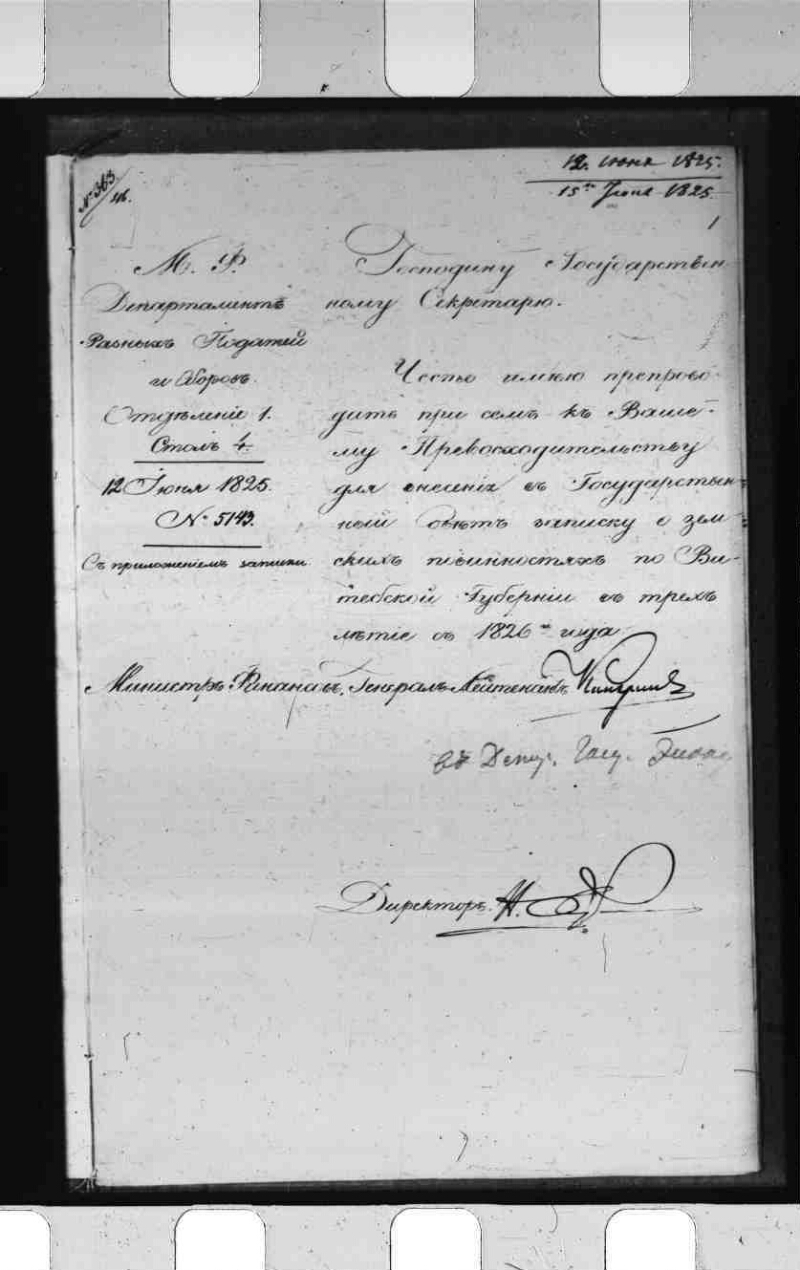 № 363
12. июня 1825.
15го Июня 1825
1
М. Ф.
Департаментъ
Разныхъ Податей
и Сборовъ.
Отдѣленіе 1.
Столъ 4.
12 Июня 1825.
№ 5143.
Съ приложеніемъ записки.
Господину Государствен-
ному Секретарю.
Честь имѣю препрово-
дить при семъ къ Ваше-
му Превосходительству
для внесенія въ Государствен-
ный Совѣтъ записку о зем-
скихъ повинностяхъ по Ви-
тебской Губерніи въ трех-
лѣтіе съ 1826го года.
Министръ Финансовъ, Генералъ Лейтенантъ Канкринъ
въ Депар. Госу.
Директоръ.